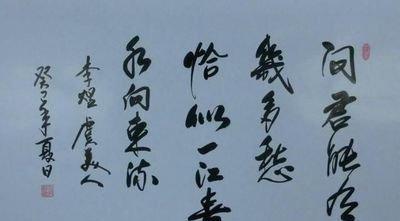 问君能有
幾多愁
恰似一江春
水向東流
李煜虞美人
癸巳年夏日